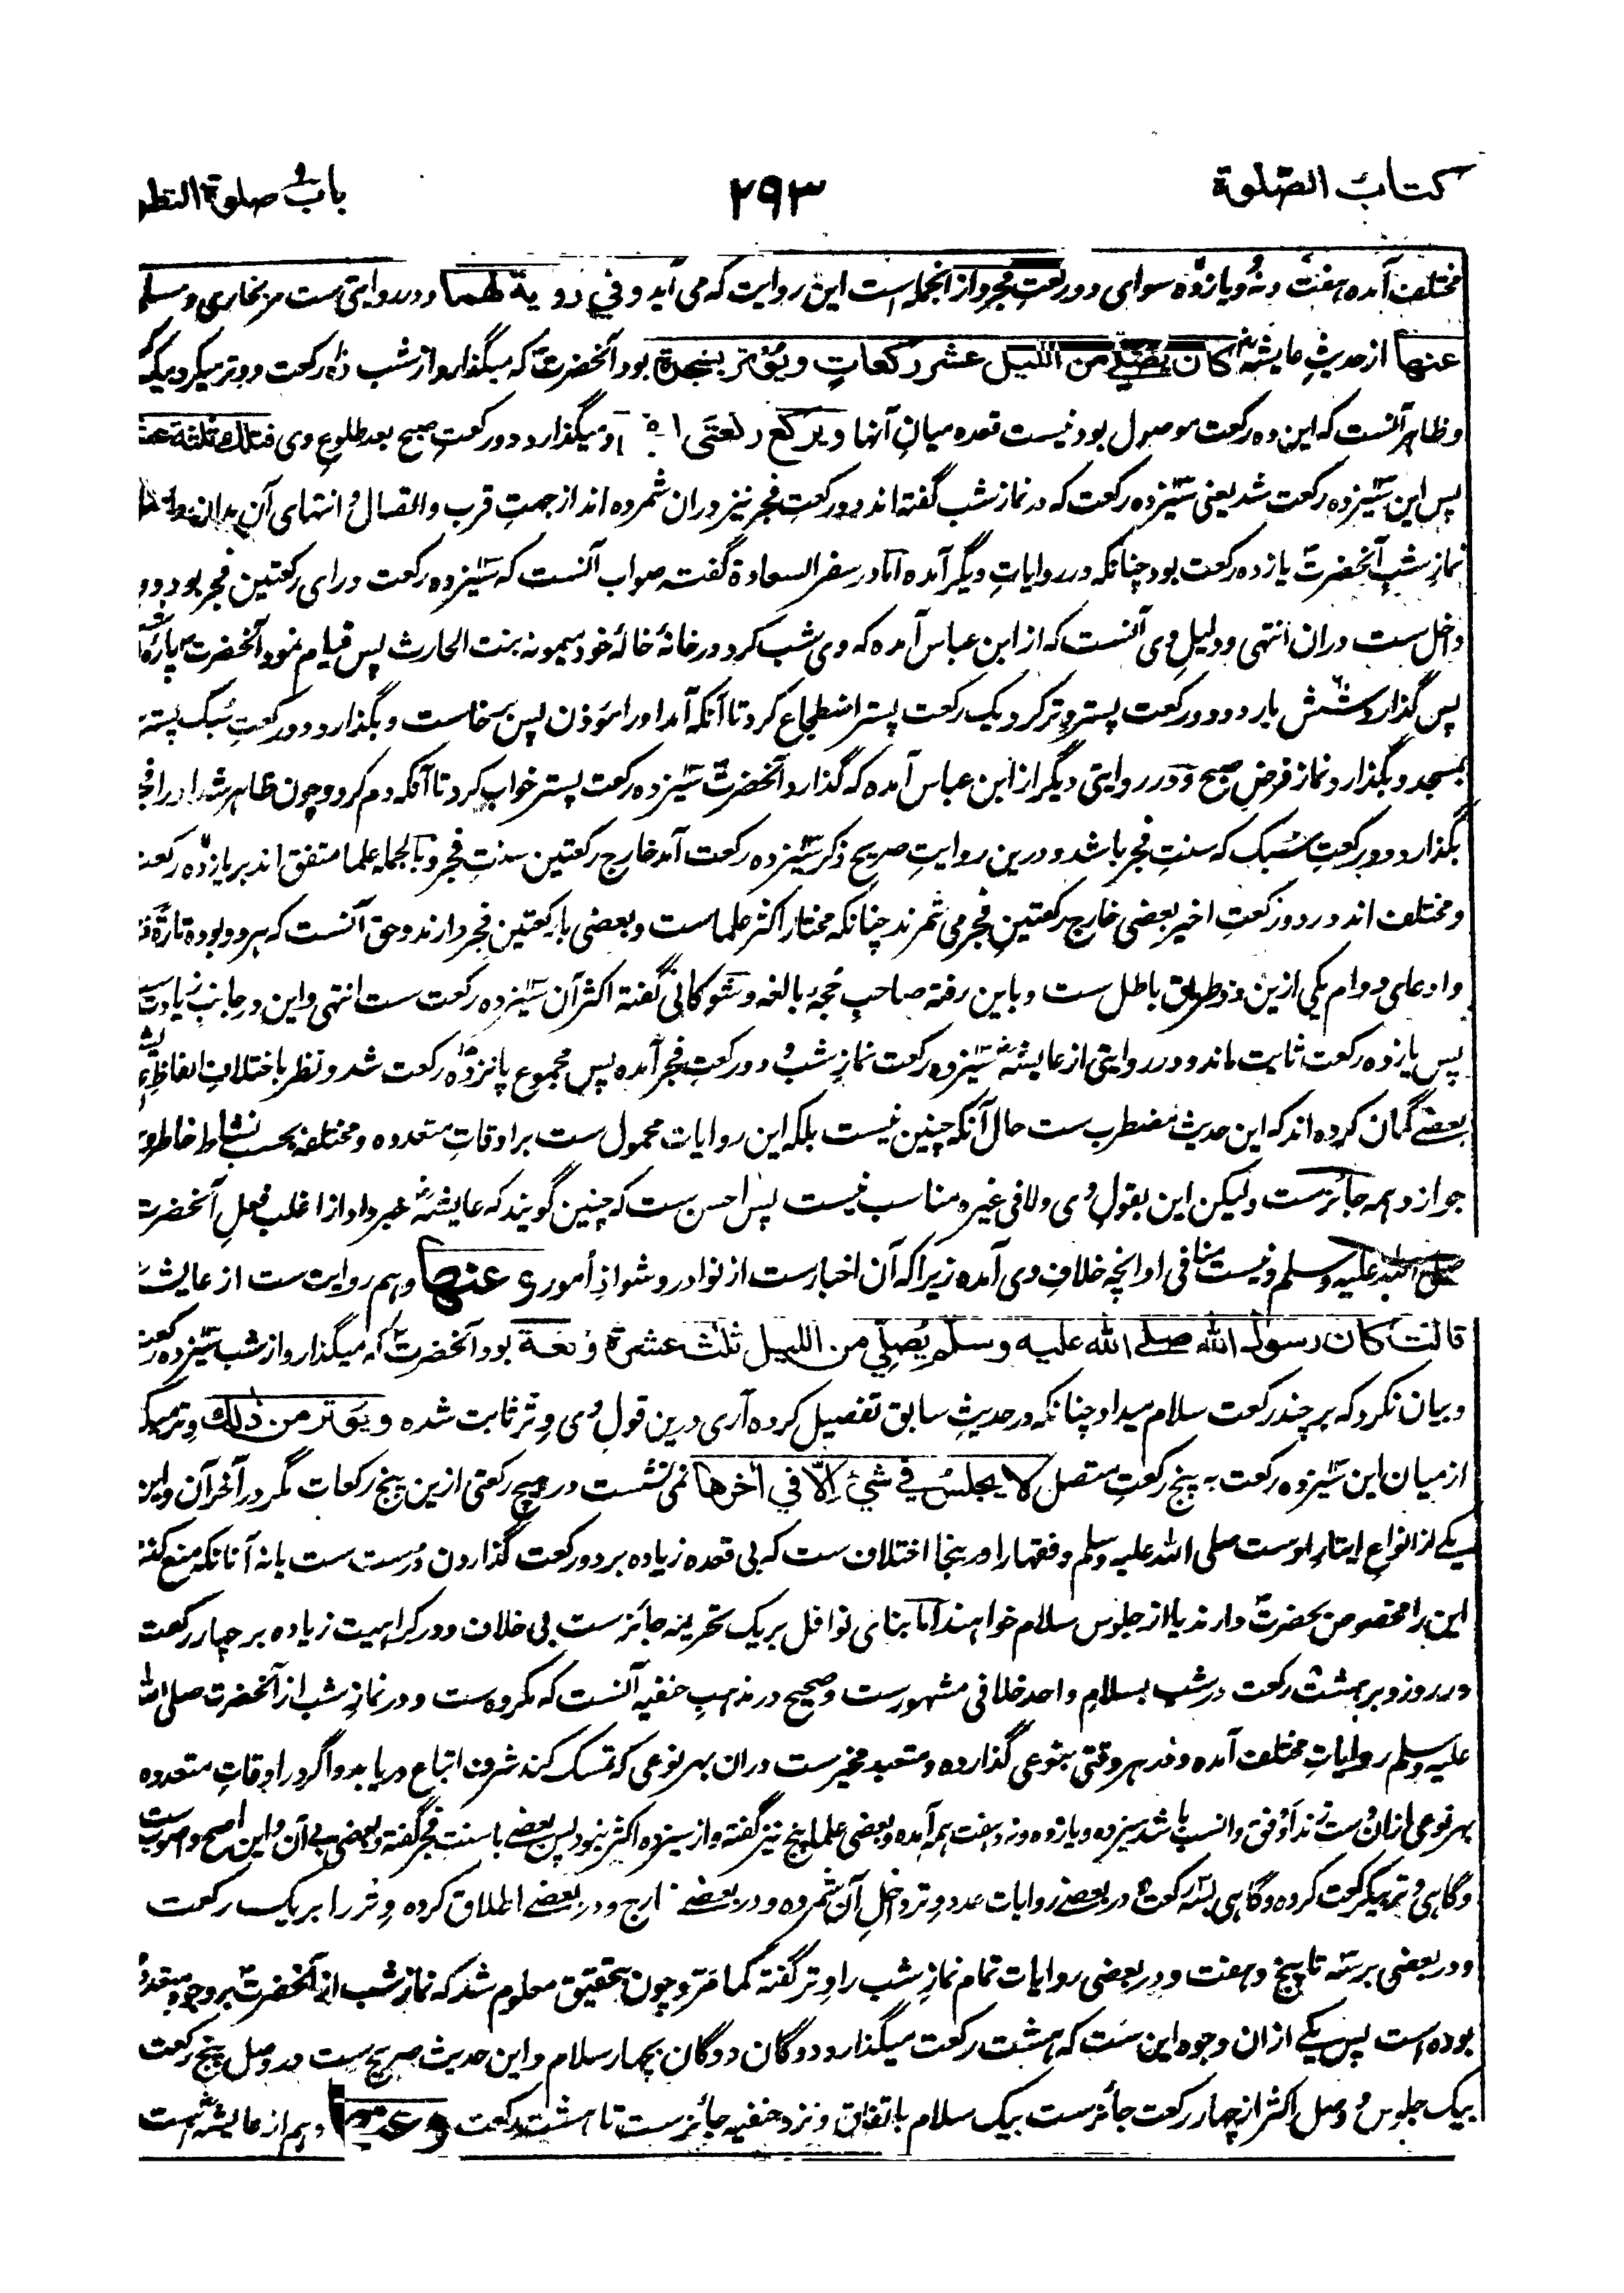 کتاب الصّلوة
۲۹۳
باب صلوة التطو
مختلف آمده هفت و نُه و یازده سوای دو رکعت فجر و از آنجمله است این روایت که می آید و في رواية لهما و در روایتی ست مر بخاری و مسلم
عنها از حدیثِ عایشه كان يصلي من الليل عشر ركعاتٍ و يُوتر بسجدة بود آنحضرت که میگذارد از شب ده رکعت و وتر میکرد بیک
و ظاهر آنست که این ده رکعت موصول بود نیست قعده میانِ آنها و يركع ركعتي و میگذارد دو رکعتِ صبح بعد طلوعِ وی فتلك ثلثة
پس این سیزده رکعت شد یعنی سیزده رکعت که در نماز شب گفته اند دو رکعتِ فجر نیز دران شمرده اند از جهتِ قرب و اتصال و انتهای آن بدان
نمازِ شبِ آنحضرت یازده رکعت بود چنانکه در روایاتِ دیگر آمده اما در سفر السعادة گفته صواب آنست که سیزده رکعت ورای رکعتین فجر بود
داخل ست دران انتهی و دلیلِ وی آنست که از ابن عباس آمده که وی شب کرد در خانهٔ خالهٔ خود میمونه بنت الحارث پس قیام نمود آنحضرت پارهٔ
پس گذارد شش بار دو دو رکعت پستر وتر کرد یک رکعت پستر اضطجاع کرد تا آنکه آمد او را مؤذن پس برخاست و بگذارد دو رکعتِ سبک پستر
بمسجد و بگذارد نماز فرضِ صبح و در روایتی دیگر از ابن عباس آمده که گذارد آنحضرت سیزده رکعت پستر خواب کرد تا آنکه دم کرد و چون ظاهر شد او را
بگذارد دو رکعتِ سبک که سنتِ فجر باشد و درین روایتِ صریح ذکر سیزده رکعت آمد خارج رکعتین سنتِ فجر و بالجمله علما متفق اند بر یازده رکعت
و مختلف اند در دو رکعتِ اخیر بعضی خارج رکعتینِ فجر می شمرند چنانکه مختار اکثر علماست و بعضی با رکعتین فجر دارند و حق آنست که هر دو بوده تارةً
و ادعای دوام یکی ازین دو طریق باطل ست و باین رفته صاحبِ حجهٔ بالغه و شوکانی گفته اکثر آن سیزده رکعت ست انتهی و این در جانبِ زیادت
پس یازده رکعت ثابت ماند و در روایتی از عایشه سیزده رکعت نمازِ شب و دو رکعتِ فجر آمده پس مجموع پانزده رکعت شد و نظر باختلافِ الفاظِ
بعضے گمان کرده اند که این حدیث مضطرب ست حال آنکه چنین نیست بلکه این روایات محمول ست بر اوقاتِ متعدده و مختلفه بحسب نشاط خاطر و
جواز و همه جائز ست ولیکن این بقولِ وی ولا في غيره مناسب نیست پس احسن ست که چنین گویند که عایشه خبر داد از اغلب فعلِ آنحضرت
صلی الله علیه وسلم و نیست منافی او انچه خلافِ وی آمده زیرا که آن اخبارست از نوادر و شواذِ اُمور و عنها و هم روایت ست از عایشه
قالت كان رسول الله صلے الله عليه وسلم يُصلّي من الليل ثلث عشرة ركعة بود آنحضرت که میگذارد از شب سیزده رکعت
و بیان نکرد که بر چند رکعت سلام میداد چنانکه در حدیثِ سابق تفصیل کرده آری درین قولِ وی وِتر ثابت شده و يوتر من ذلك وتر میک
از میان این سیزده رکعت به پنج رکعتِ متصل لا يجلسُ في شئ اِلّا في اٰخرها نمی نشست در هیچ رکعتی ازین پنج رکعات مگر در آخر آن و این
یکے از انواعِ ایتارِ اوست صلی الله علیه وسلم و فقها را درینجا اختلاف ست که بی قعده زیاده بر دو رکعت گذاردن دُرست ست یا نه آنانکه منع کنند
این را مخصوص بحضرت دارند یا از جلوس سلام خواهند اما بنای نوافل بر یک تحریمه جائز ست بی خلاف و در کراهیت زیاده بر چهار رکعت
در روز و بر هشت رکعت در شب بسلامِ واحد خلافی مشهورست و صحیح در مذهبِ حنفیه آنست که مکروه ست و در نمازِ شب از آنحضرت صلی الله
علیه وسلم روایاتِ مختلف آمده و در هر وقتی بنوعی گذارده و متعبد مخیرست دران بهر نوعی که تمسک کند شرف اتباع دریابد و اگر در اوقاتِ متعدده
بهر نوعی ازان ست زند اوفق و انسب باشد سیزده و یازده و نه و هفت همه آمده و بعضی علما پنج نیز گفته و از سیزده اکثر نبود پس بعضے با سنت فجر گفته و بعضی بے آن و این اصح و اصوب ست
و گاهی وتر بیک رکعت کرده و گاهی بسه رکعت و در بعضے روایات عددِ وتر داخلِ آن شمرده و در بعضے خارج و در بعضے اطلاق کرده وِتر را بر یک رکعت
و در بعضی بر سه تا پنج و هفت و در بعضی روایات تمام نمازِ شب را وتر گفته کما مرّ و چون بتحقیق معلوم شد که نمازِ شب از آنحضرت بر وجوهِ متعدده
بوده است پس یکے ازان وجوه این ست که هشت رکعت میگذارد دوگان دوگان بچهار سلام و این حدیث صریح ست در وصل پنج رکعت
بیک جلوس و وصل اکثر از چهار رکعت جائز ست بیک سلام باتفاق و نزد حنفیه جائز ست تا هشت رکعت و عنها و هم از عایشه است